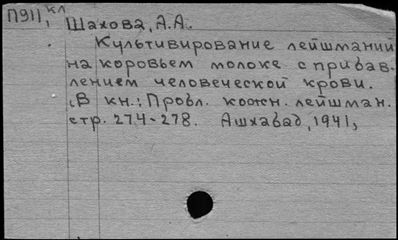 П911, кл
Шахова, А.А.
Культивирование лейшманий
на коровьем молоке с прибав-
лением человеческой крови.
(В кн.: Пробл. кожн. лейшман.
стр. 274-278. Ашхабад, 1941,